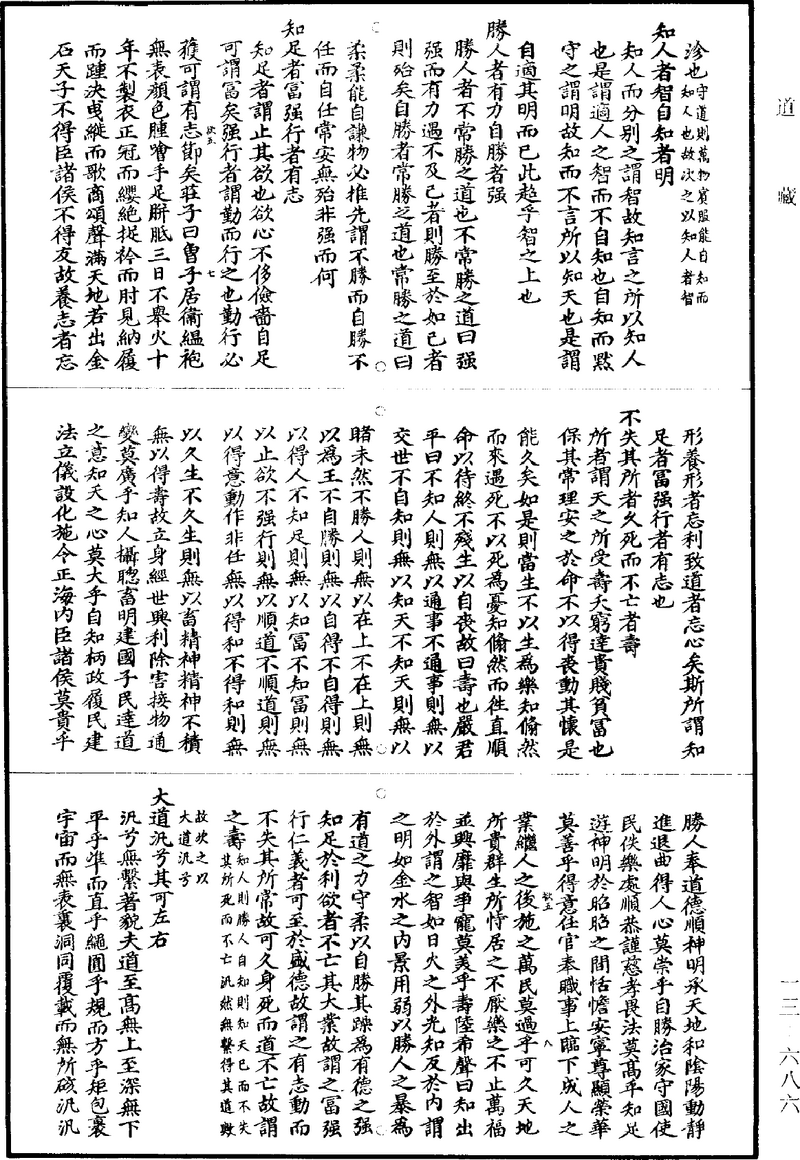 道藏
一三—六八六
沴也守道則萬物賓服能自知而
知人也故次之以知人者智
知人者智自知者明
知人而分別之謂智故知言之所以知人
也是謂適人之智而不自知也自知而默
守之謂明故知而不言所以知天也是謂
自適其明而已此趂乎智之上也
勝人者有力自勝者强
勝人者不常勝之道也不常勝之道曰强
强而有力遇不及已者則勝至於如已者
則殆矣自勝者常勝之道也常勝之道曰
柔柔能自謙物必推先謂不勝而自勝不
任而自任常安無殆非强而何
知足者富强行者有志
知足者謂止其欲也欲心不侈儉嗇自足
可謂富矣强行者謂勤而行之也勤行必
獲可謂有志節矣莊子曰曾子居衞緼袍
無表顔色腫噲手足胼胝三日不舉火十
年不製衣正冠而纓絶捉衿而肘見納履
而踵決曳縱而歌商頌聲滿天地若出金
石天子不得臣諸侯不得友故養志者忘
形養形者忘利致道者忘心矣斯所謂知
足者富强行者有志也
不失其所者久死而不亡者壽
所者謂天之所受壽夭窮達貴賤貧冨也
保其常理安之於命不以得喪動其懷是
能久矣如是則當生不以生爲樂知翛然
而來遇死不以死爲憂知翛然而徃直順
命以待終不殘生以自喪故曰壽也嚴君
平曰不知人則無以通事不通事則無以
交世不自知則無以知天不知天則無以
睹未然不勝人則無以在上不在上則無
以爲王不自勝則無以自得不自得則無
以得人不知足則無以知冨不知冨則無
以止欲不强行則無以順道不順道則無
以得意動作非任無以得和不得和則無
以久生不久生則無以畜精神精神不積
無以得壽故立身經世興利除害接物通
變莫廣乎知人攝聦畜明建國子民達道
之意知天之心莫大乎自知柄政履民建
法立儀設化施令正海内臣諸侯莫貴乎
勝人奉道德順神明承天地和陰陽動靜
進退曲得人心莫崇乎自勝治家守國使
民佚樂處順恭謹慈孝畏法莫髙乎知足
遊神明於昭昭之間恬憺安寧尊顯榮華
莫善乎得意任官奉職事上臨下成人之
業繼人之後施之萬民莫過乎可久天地
所貴群生所恃居之不厭樂之不止萬福
並興靡與爭寵莫美乎壽陸希聲曰知出
於外謂之智如日火之外光知反於内謂
之明如金水之内景用弱以勝人之暴爲
有道之力守柔以自勝其躁爲有德之强
知足於利欲者不亡其大業故謂之冨强
行仁義者可至於盛德故謂之有志動而
不失其所常故可久身死而道不亡故謂
之壽知人則勝人自知則知天已而不失
其所死而不亡汎然無繫得其道歟
故次之以
大道汎兮
大道汎兮其可左右
汎兮無繫著貌夫道至髙無上至深無下
平乎準而直乎繩圓乎規而方乎矩包裹
宇宙而無表裏洞同覆載而無所礙汎汎